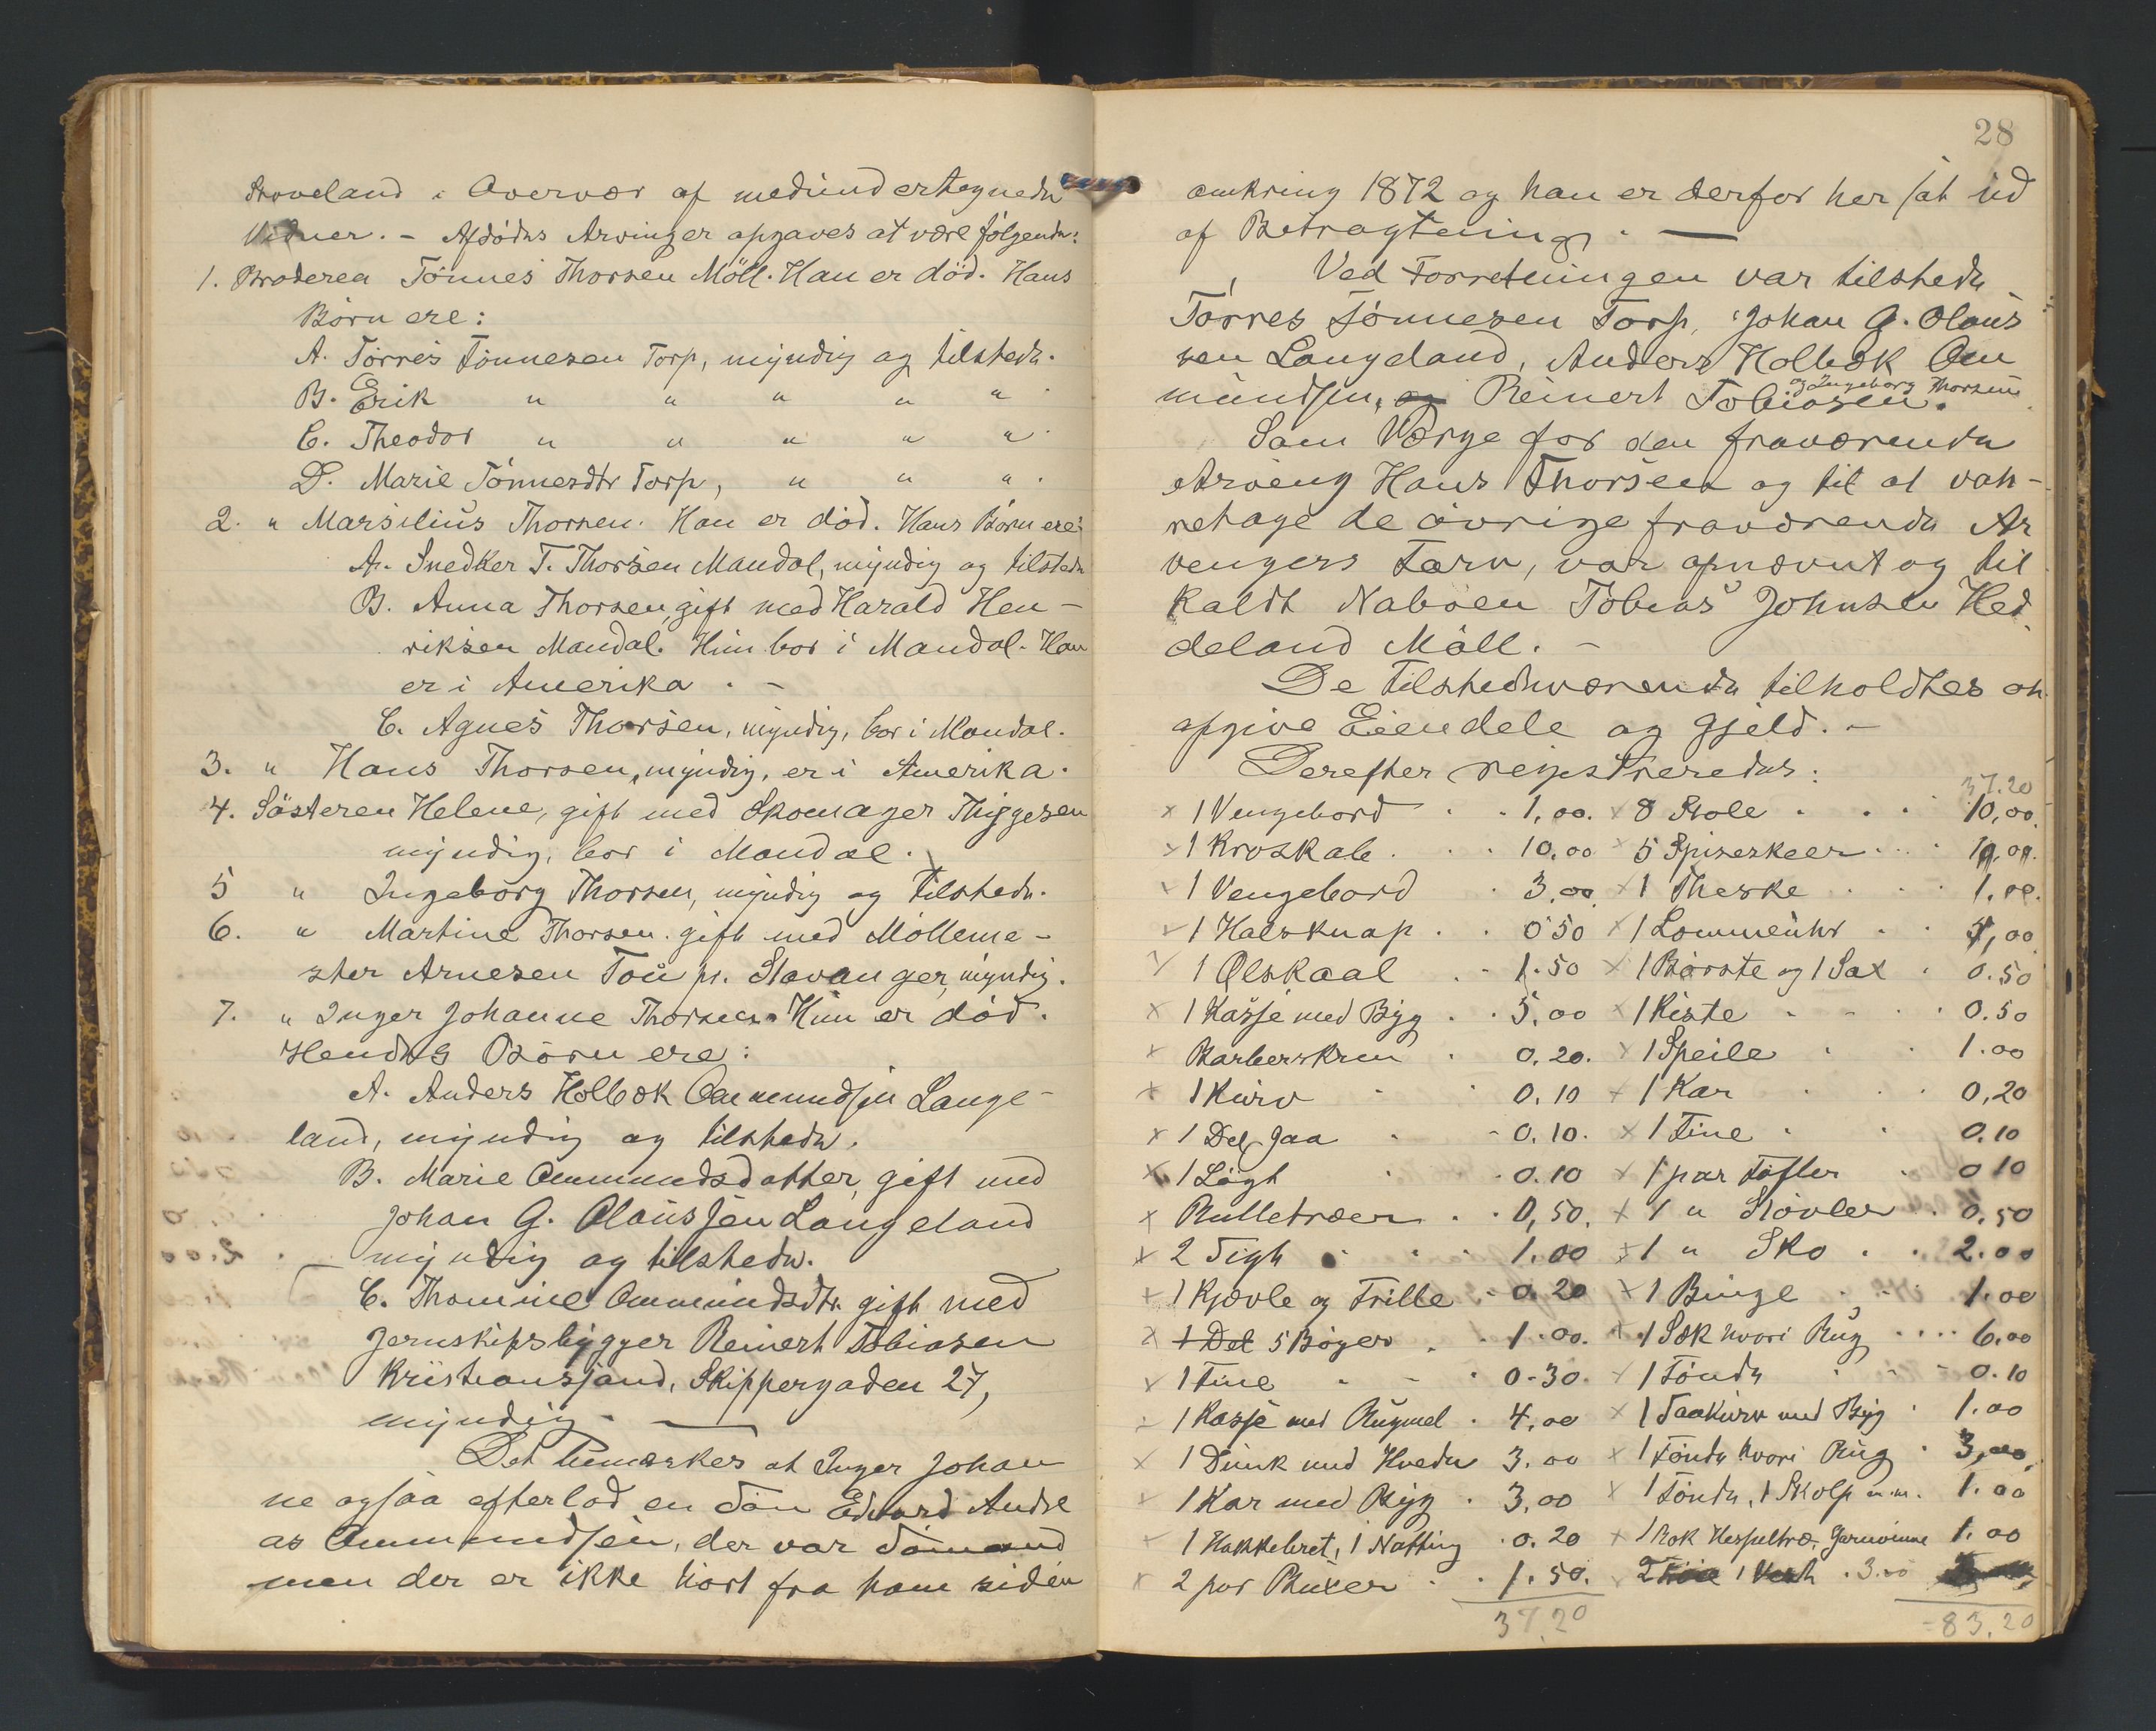 Stoveland i Overvær af medundertegnede
Vidner. - Afdødes Arvinger opgaves at være følgende:
1. Broderen Tønnes Thorsen Möll. Han er död. Hans
Børn ere:
A. Tørres Tønnesen Torp, myndig og tilstede.
B. Erik " " " " "
C. Theodor " " " " "
D. Marie Tönnesdtr Torp, " " "
2. " Marsilius Thorsen. Han er död. Hans Børn ere:
A. Snedker T. Thorsen Mandal, myndig og tilstede
B. Anna Thorsen, gift med Harald Hen-
riksen Mandal. Hun bor i Mandal. Han
er i Amerika. -
C. Agnes Thorsen, myndig, bor i Mandal.
3. " Hans Thorsen, myndig, er i Amerika.
4. Søsteren Helene, gift med Skomager Thygesen
myndig, bor i Mandal.
5 " Ingeborg Thorsen, myndig og tilstede.
6. " Martine Thorsen gift med Mölleme-
ster Arnesen Tou pr. Stavanger, myndig.
7. " Inger Johanne Thorsen. Hun er död.
Hendes Børn ere:
A. Anders Holbæk Ommundsen Lange-
land, myndig og tilstede.
B. Marie Ommundsdatter, gift med
Johan G. Olaussen Langeland
myndig og tilstede.
C. Thomine Ommundsdtr. gift med
Jernskibsbygger Reinert Tobiasen
Kristiansand, Skippergaden 27,
myndig. —
Det bemærkes at Inger Johan
ne ogsaa efterlod en Søn Edvard Andre
as Ommundsen, der var Sømand
men der er ikke hört fra ham siden
28
omkring 1872 og han er derfor her sat ud
af Betragtning. —
Ved Forretningen var tilstede
Tørres Tönnesen Torp, Johan G. Olaus
sen Langeland, Anders Holbæk Om
mundsen, og Reinert Tobiasen. og Ingeborg Thorsen
Som Værge for den fraværende
Arving Hans Thorsen og til at vah-
retage de øvrige fraværende Ar
vingers Tarv, var opnævnt og til
kaldt Naboen Tobias Johnsen Hed
deland Möll. -
De tilstedeværende tilholdtes at
opgive Eiendele og Gjeld. -
Derefter registreredes:
37.20
x 1 Vengebord . . 1,00. x 8 Stole . . . 10,00.
x 1 Kroskab . . . 10.00 x 5 Spiseskeer . . .
x 1 Vengebord . 3.00 x 1 Theske . . . 1.00.
x 1 Halsknap . . 0 50 x 1 Lommeuhr . .
x 1 Ølskaal . . 1.50 x 1 Børste og 1 Sax . 0.50
x 1 Kasse med Byg . . 5.00 x 1 Kiste . . . 0.50
x Barberskrin . 0.20. x 1 Speile . . 1.00
x 1 Kurv . . 0.10 x 1 Kar . . 0,20
x 1 Del Jaa . . 0.10. x 1 Tine . . 0.10
x 1 Løgt . . 0.10 x 1 par Tøfler . 0 10
x Rulletræer . . 0,50. x 1 " Støvler . 0.50
x 2 . . . 1.00 x 1 " Sko . . 2.00
x 1 Kjævle og Trille . 0.20 x 1 Binge . . 1.00
x 1 Del 5 Bøger . . 1.00. x 1 Sæk hvori Rug . . . . 6.00
x 1 Tine . . . 0.30. x 1 Tønde . . 0.10
x 1 Kasse med Rugmel . 4.00 x 1 Taakurv med Byg . 1.00
x 1 Dunk med Hvede 3.00 x 1 Tønde hvori Rug . 3,00
x 1 Kar med Byg . 3.00 x 1 Tønde, 1 Skolp m.m. 1.00
x 1 Hakkebret, 1 Natting . 0.20 x 1 Rok Hespeltræ, Garnvinne 1.00
x 2 par Buxer . . 1.50. x 2 Trøie 1 Vest . 3.00
37.20
83,20